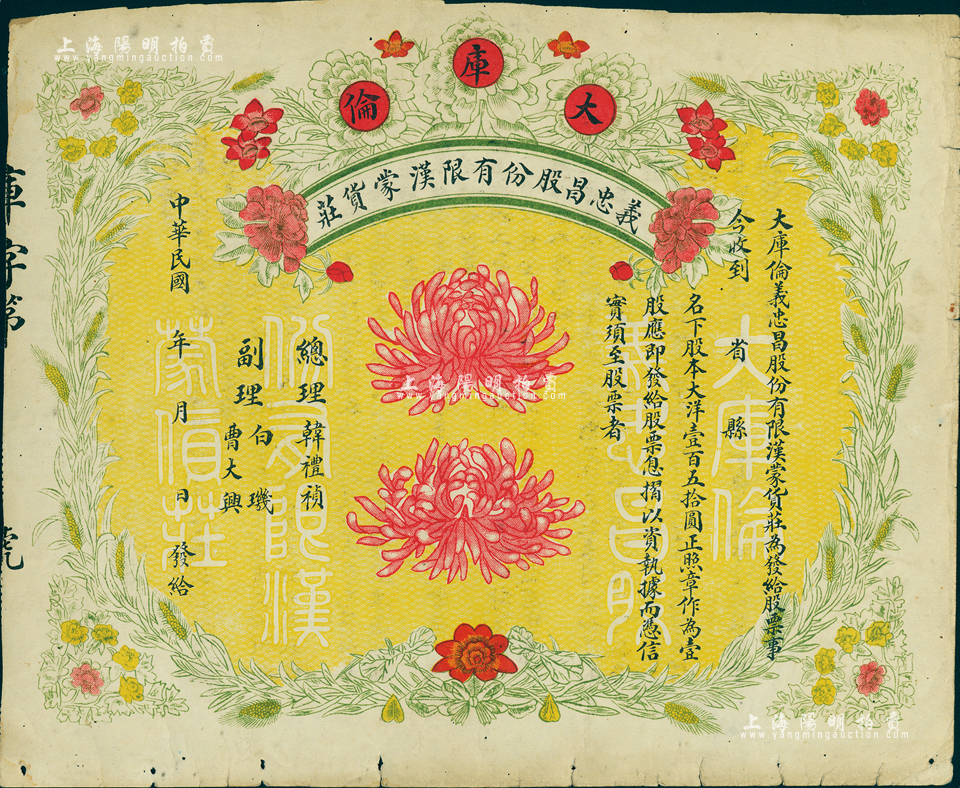 上海陽明拍賣
www.yangmingauction.com
大庫倫
義忠昌股份有限漢蒙貨莊
大庫倫義忠昌股份有限漢蒙貨莊為發給股票事
今收到 省 縣
名下股本大洋壹百五拾圓正照章作為壹
股應即發給股票息摺以資執據而憑信
實須至股票者
總理 韓禮禎
副理 白璣
曹大興
中華民國 年 月 日 發給
大庫倫
義忠昌股
份有限漢
蒙貨莊
庫字第 號
上海陽明拍賣
www.yangmingauction.com
上海陽明拍賣
www.yangmingauction.com